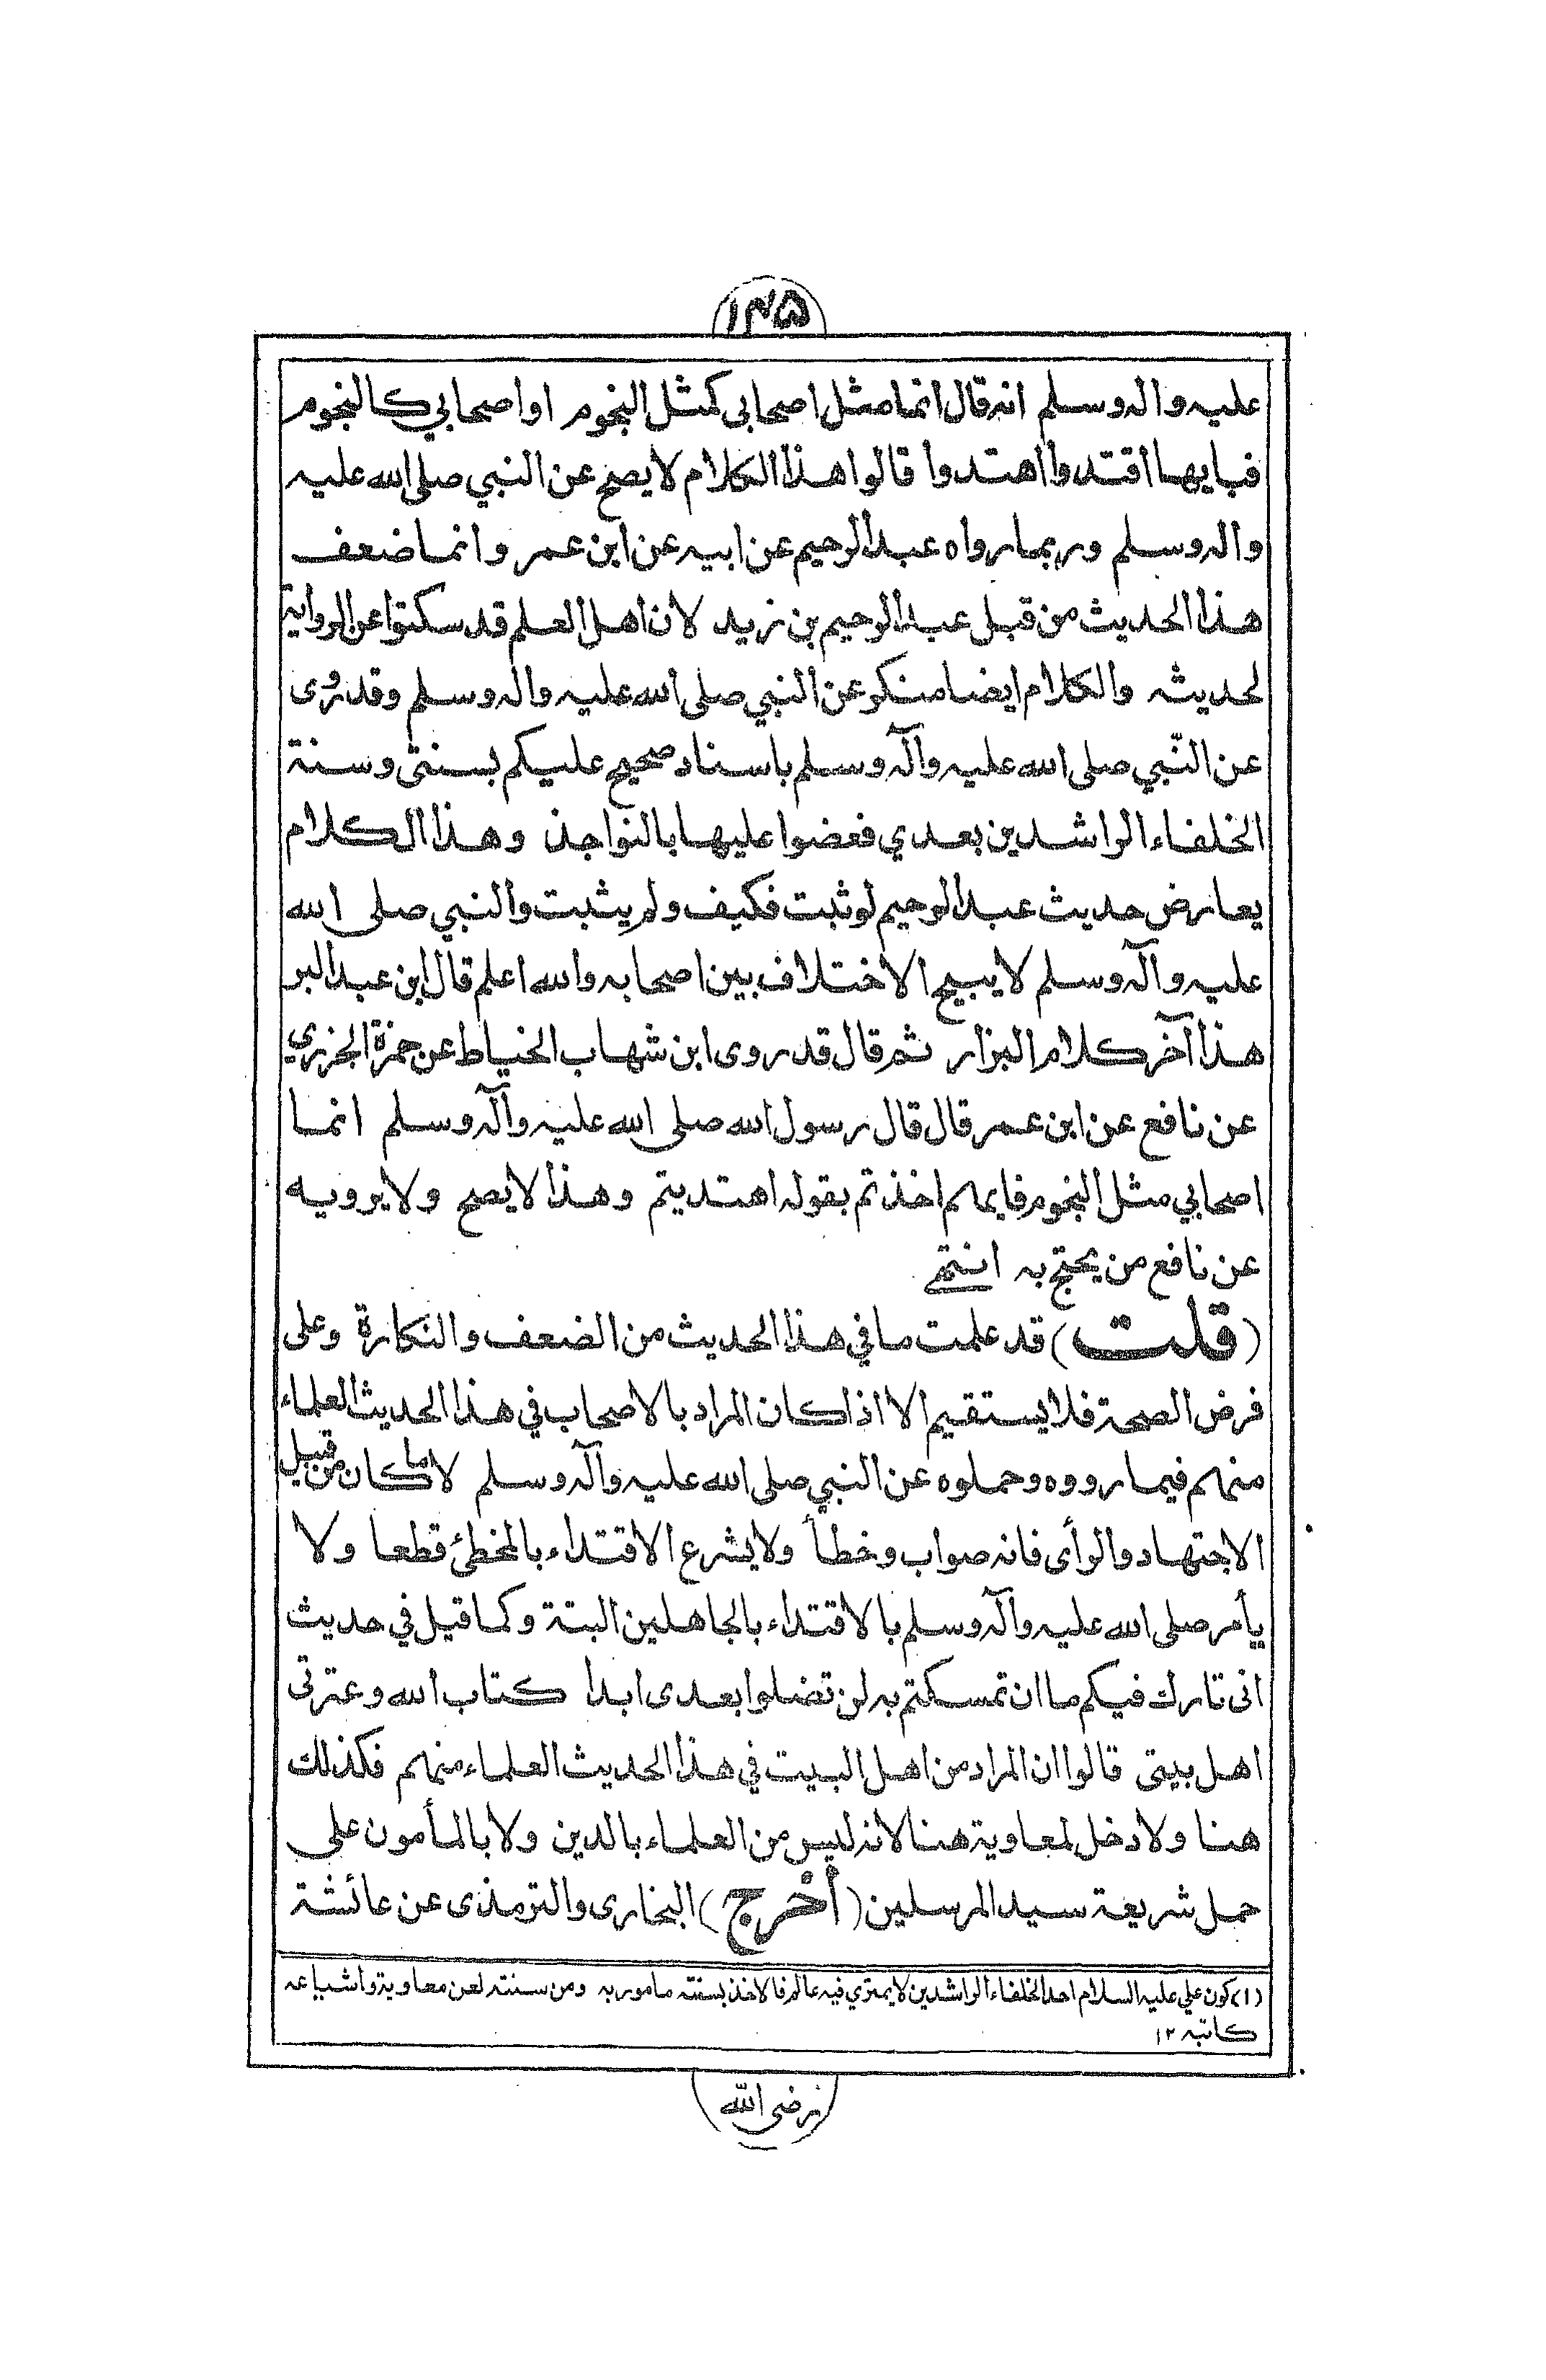 ۱۴۵
عليه واله وسلم انه قال انما مثل اصحابي كمثل النجوم او اصحابي كالنجوم
فبايها اقتدوا اهتدوا قالوا هذا الكلام لا يصح عن النبي صلى الله عليه
واله وسلم وربما رواه عبد الرحيم عن ابيه عن ابن عمر وانما ضعف
هذا الحديث من قبل عبد الرحيم بن زيد لان اهل العلم قد سكتوا عن الرواية
لحديثه والكلام ايضا منكر عن النبي صلى الله عليه واله وسلم وقد روى
عن النّبي صلى الله عليه وآله وسلم باسناد صحيح عليكم بسنتى وسنة
الخلفاء الراشدين بعدي فعضوا عليها بالنواجذ وهذا الكلام
يعارض حديث عبد الرحيم لو ثبت فكيف ولم يثبت والنبي صلى الله
عليه وآله وسلم لا يبيح الاختلاف بين اصحابه والله اعلم قال ابن عبد البر
هذا آخر كلام البزار ثم قال قد روى ابن شهاب الخياط عن حمزة الجزري
عن نافع عن ابن عمر قال قال رسول الله صلى الله عليه وآله وسلم انما
اصحابي مثل النجوم فايهم اخذتم بقوله اهتديتم وهذا لا يصح ولا يرويه
عن نافع من يحتج به انتهى
(قلت) قد علمت ما في هذا الحديث من الضعف والنكارة وعلى
فرض الصحة فلا يستقيم الا اذا كان المراد بالاصحاب في هذا الحديث العلماء
منهم فيما رووه وحملوه عن النبي صلى الله عليه وآله وسلم لا ما كان من قبيل
الاجتهاد والرأى فانه صواب وخطأ ولا يشرع الاقتداء بالمخطئ قطعا ولا
يأمر صلى الله عليه وآله وسلم بالاقتداء بالجاهلين البتة وكما قيل في حديث
انى تارك فيكم ما ان تمسكتم به لن تضلوا بعدى ابدا كتاب الله وعترتى
اهل بيتى قالوا ان المراد من اهل البيت في هذا الحديث العلماء منهم فكذلك
هنا ولا دخل لمعاوية هنا لانه ليس من العلماء بالدين ولا بالمأمون على
حمل شريعة سيد المرسلين (أخرج) البخارى والترمذى عن عائشة
(۱) كون علي عليه السلام احد الخلفاء الراشدين لا يمتري فيه عالم فالاخذ بسنته مامور به ومن سنته لعن معاوية واشياعه
كاتبه ۱۲
رضى الله